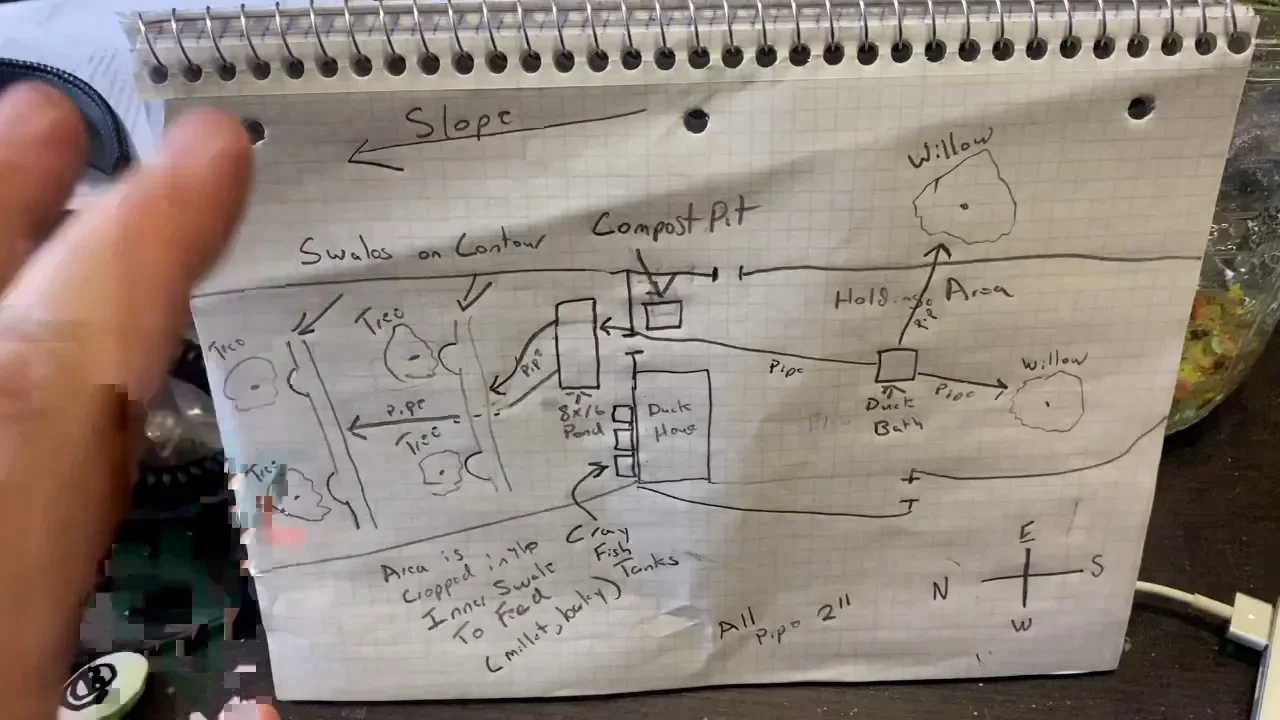 Slope
Willow
Compost Pit
Swales on Contour
Holding Area
Tree
Tree
Pipe
Pipe
Pipe
Willow
8x16
Pond
Duck
House
Duck
Bath
Pipe
Tree
Tree
Cray
Fish
Tanks
Area is
cropped in the
Inner Swale
To Feed
(millet, barley)
All
Pipe 2"
E
N
S
W